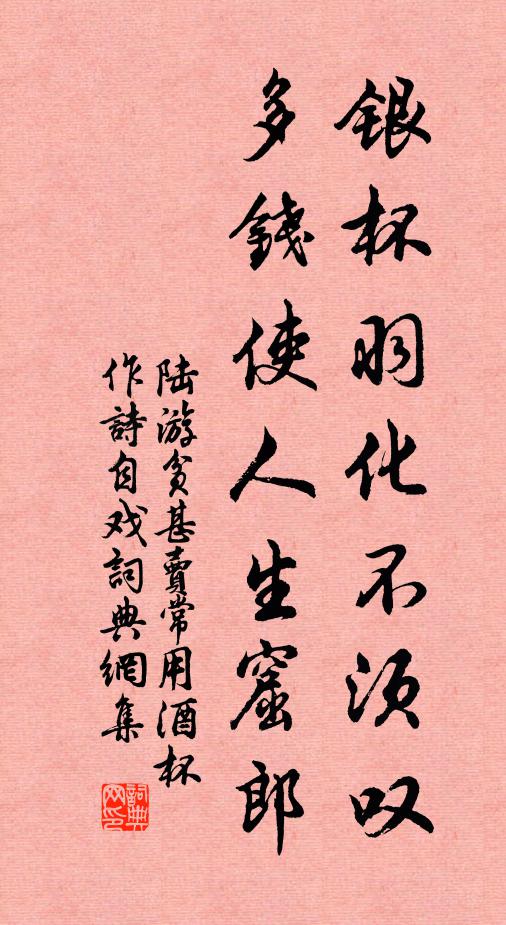 银杯羽化不须叹
多錢使人生窟郎
陆游貧甚賣常用酒杯
作詩自戏詞典網集
詞典
网印